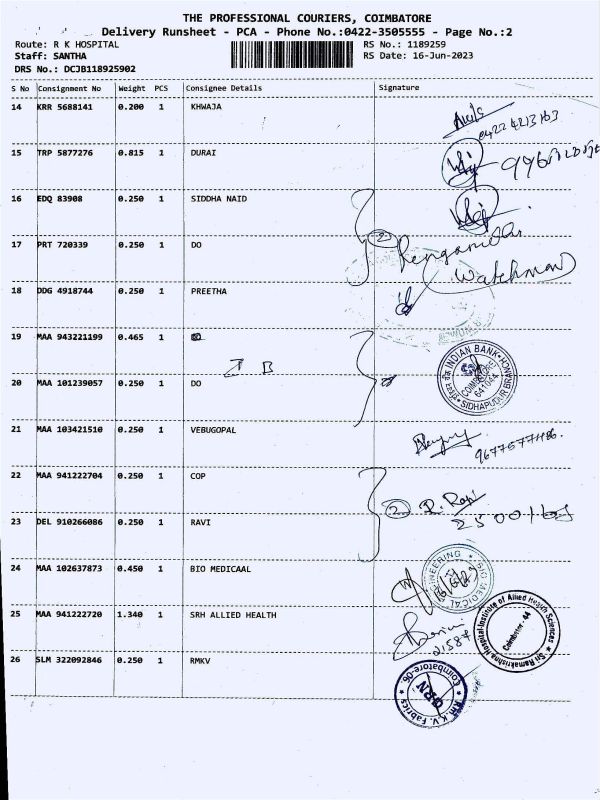 THE PROFESSIONAL COURIERS, COIMBATORE
Delivery Runsheet - PCA - Phone No.:0422-3505555 - Page No.:2
Route: R K HOSPITAL RS No.: 1189259
Staff: SANTHA RS Date: 16-Jun-2023
DRS No.: DCJB118925902
S No Consignment No Weight PCS Consignee Details Signature
14 KRR 5688141 0.200 1 KHWAJA
0422 4213163
15 TRP 5877276 0.815 1 DURAI
16 EDQ 83908 0.250 1 SIDDHA NAID
17 PRT 720339 0.250 1 DO
2
Watchman
18 DDG 4918744 0.250 1 PREETHA
19 MAA 943221199 0.465 1
INDIAN BANK
COIMBATORE
641044
SIDHAPUDUR BRANCH
20 MAA 101239057 0.250 1 DO
21 MAA 103421510 0.250 1 VEBUGOPAL
22 MAA 941222704 0.250 1 COP
2 R. Ravi
23 DEL 910266086 0.250 1 RAVI
24 MAA 102637873 0.450 1 BIO MEDICAAL
BIO MEDICAL ENGINEERING
25 MAA 941222720 1.340 1 SRH ALLIED HEALTH
Sri Ramakrishna Hospital-Institute of Allied Health Sciences
Coimbatore. 44
26 SLM 322092846 0.250 1 RMKV
Rm. K.V. Fabrics
Coimbatore-06
GRN